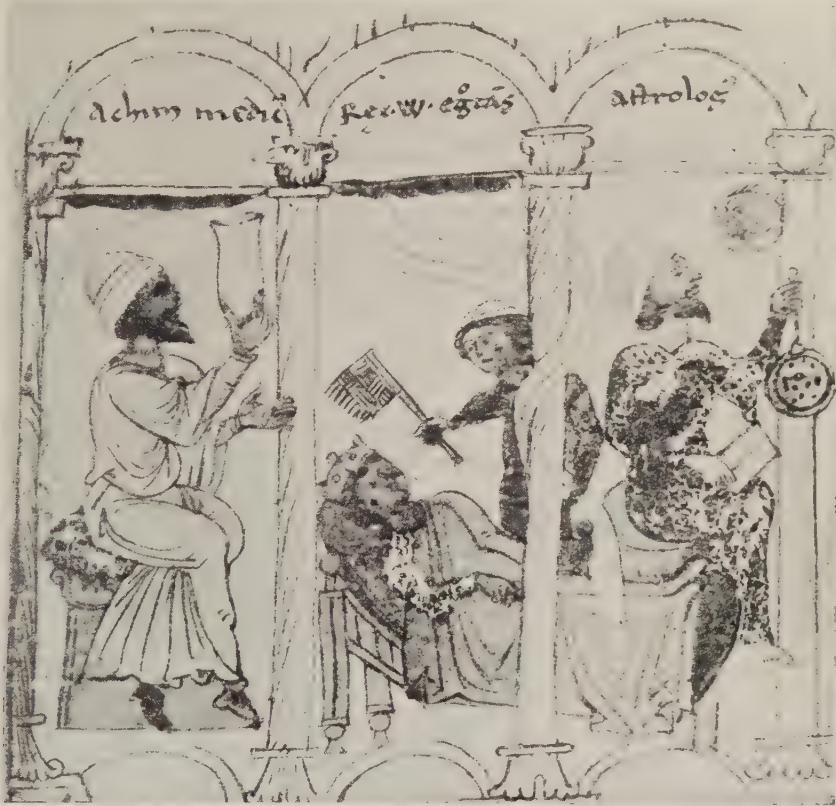 achim medic̄
Rex·W·egr̊tās
astroloḡ